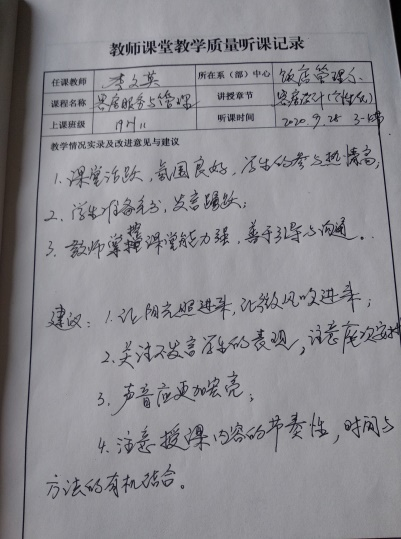 教师课堂教学质量听课记录
任课教师 李文英 所在系（部）中心 饭店管理系
课程名称 客房服务与管理 讲授章节 客房设计(个性化)
上课班级 19 听课时间 2020.9.25 3-4节
教学情况实录及改进意见与建议
1.课堂活跃，氛围良好，学生的参与热情高；
2.学生准备充分，发言踊跃；
3.教师掌控课堂能力强，善于引导与沟通。
建议：1.让阳光照进来，让微风吹进来；
2.关注不发言学生的表现，注意座次安排
3.声音应更加宏亮；
4.注意授课内容的节奏性，时间与
方法的有机结合。